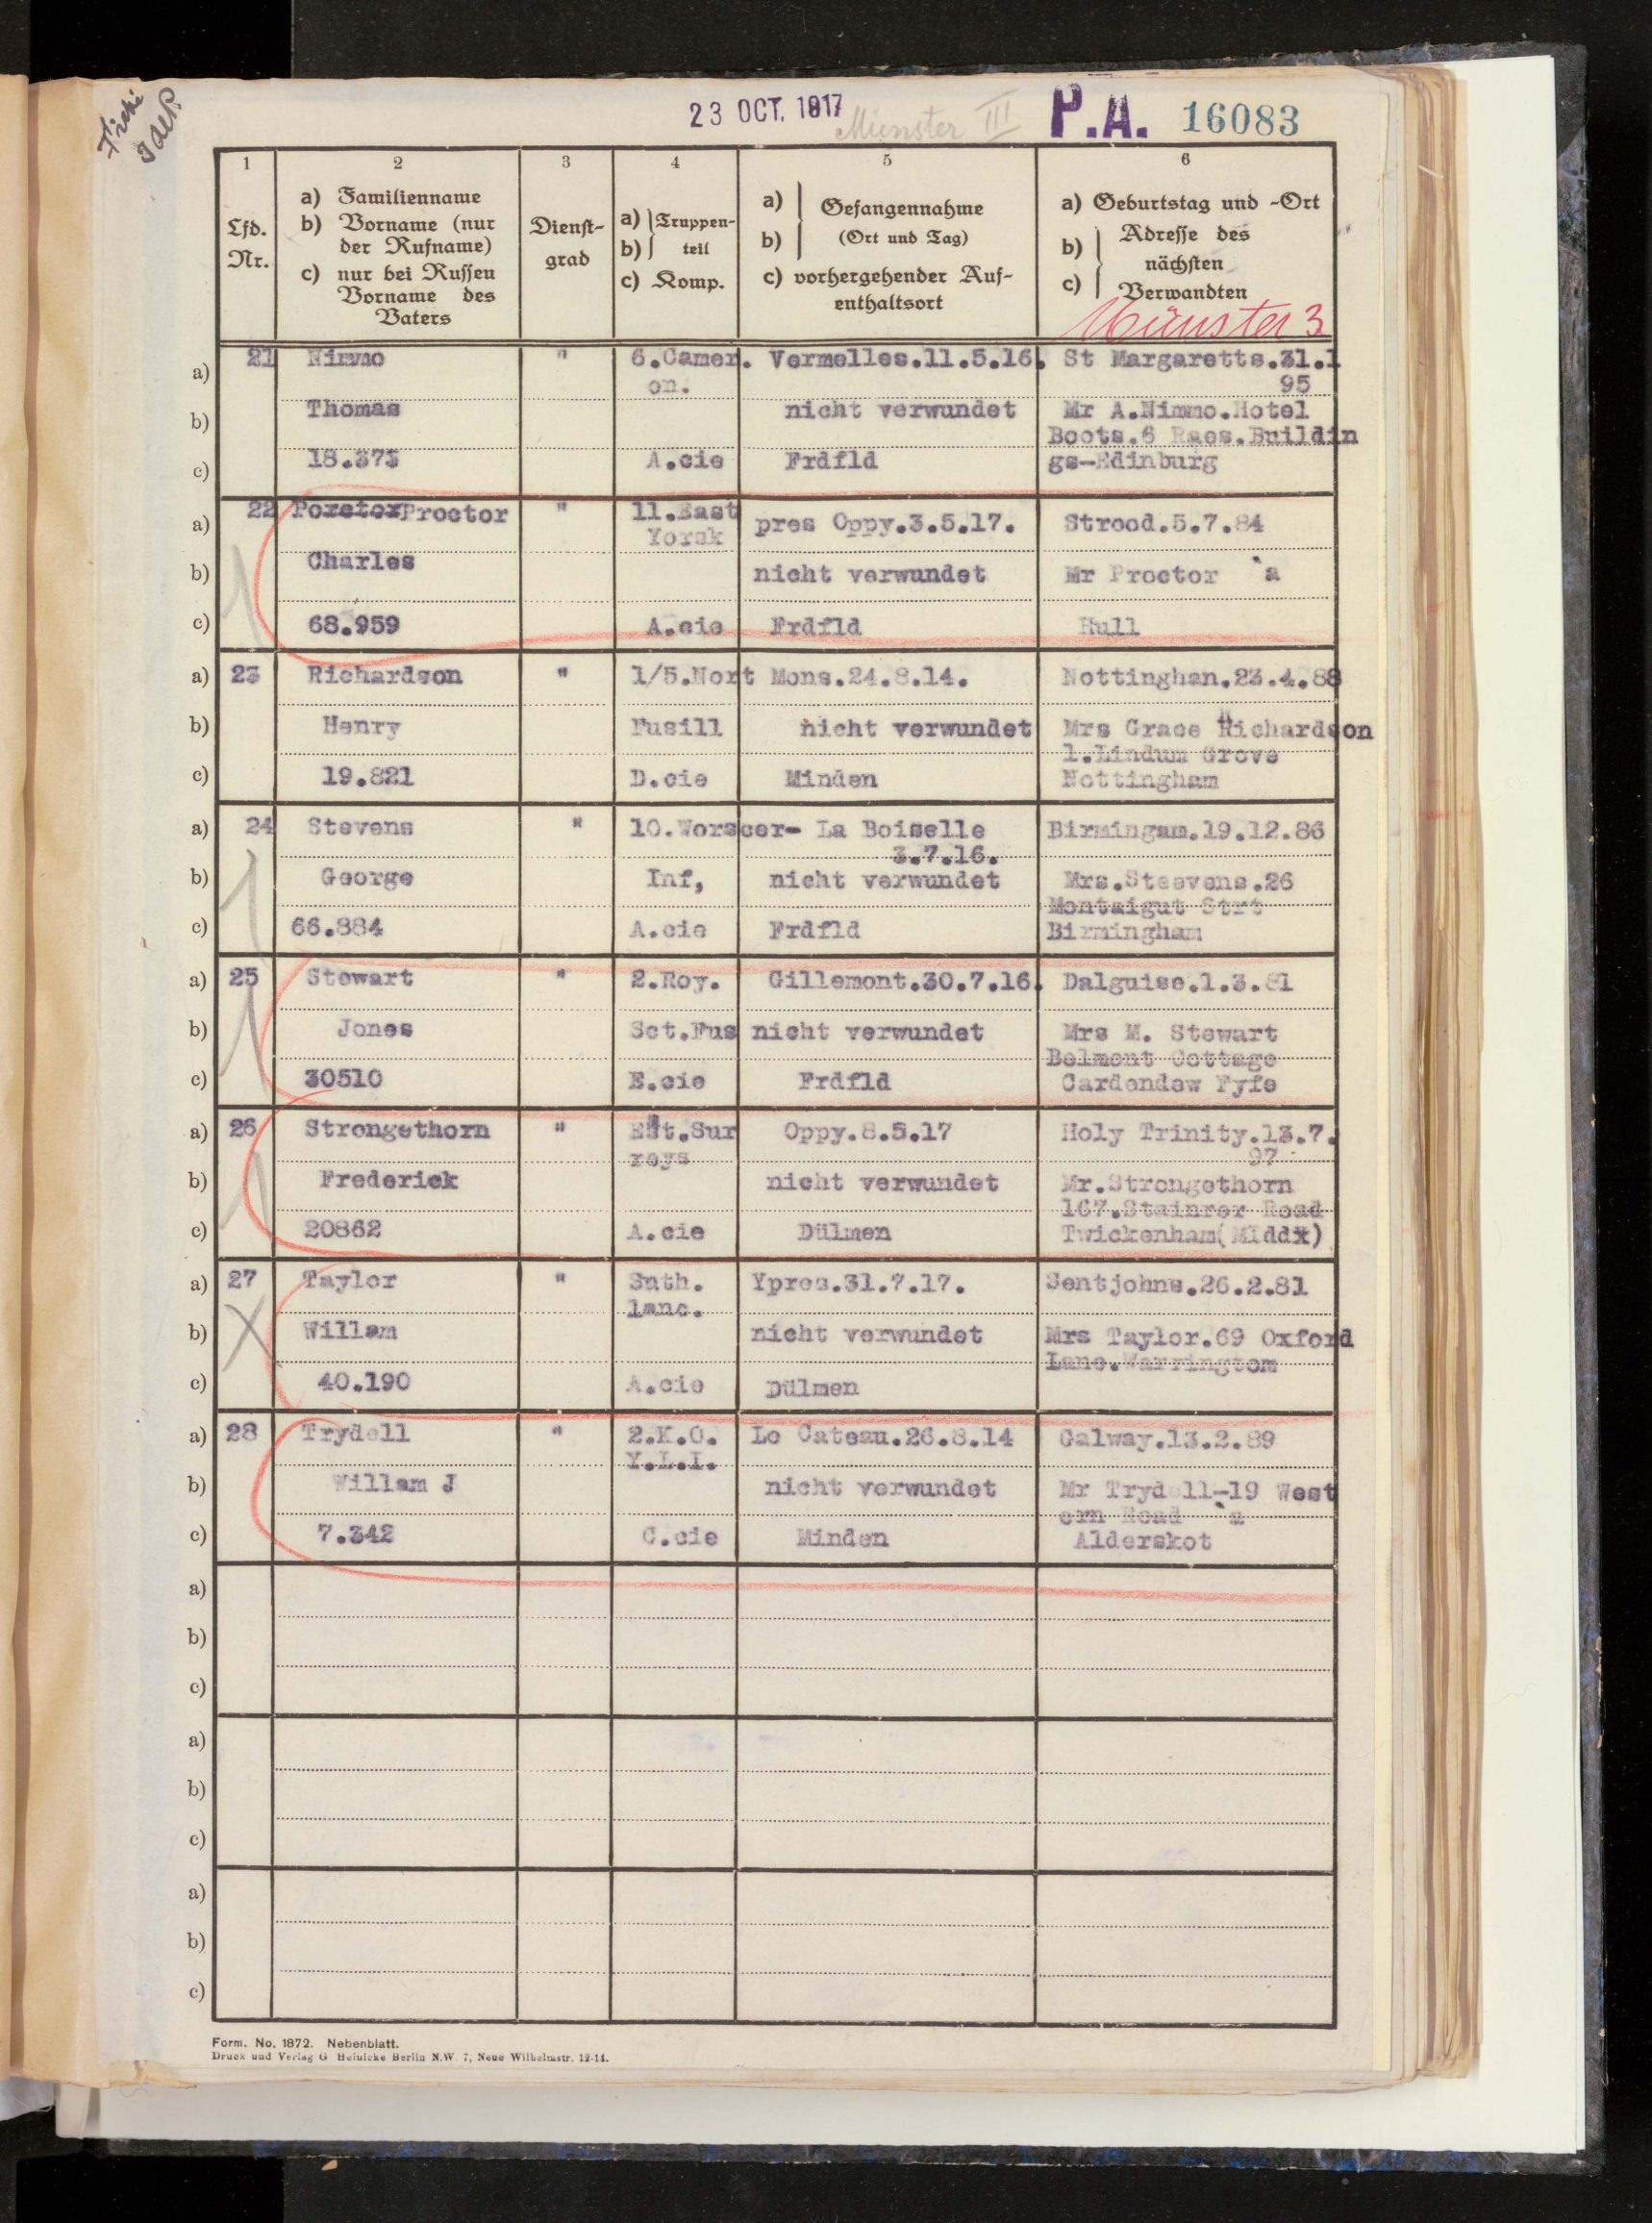 23 OCT. 1917 Münster III P.A. 16083
1 2 3 4 5 6
Lfd. Nr.
a) Familienname
b) Vorname (nur der Rufname)
c) nur bei Russen Vorname des Vaters
Dienst-
grad
a) Truppen-
b) teil
c) Komp.
a) Gefangennahme
b) (Ort und Tag)
c) vorhergehender Auf-
enthaltsort
a) Geburtstag und -Ort
b) Adresse des
nächsten
c) Verwandten
Münster 3
a) 21 Nimmo " 6.Camer. Vermelles.11.5.16. St Margaretts.31.1
on. 95
b) Thomas nicht verwundet Mr A.Nimmo.Hotel
Boots.6 Raes.Buildin
c) 18.373 A.cie Frdfld gs-Edinburg
a) 22 Poretor Proctor " 11.East pres Oppy.3.5.17. Strood.5.7.84
Yorsk
b) Charles nicht verwundet Mr Proctor `a
c) 68.959 A.cie Frdfld Hull
a) 23 Richardson " 1/5.Nort Mons.24.8.14. Nottinghan.23.4.88
b) Henry Fusill nicht verwundet Mrs Grace Richardson
1.Lindum Grove
c) 19.821 D.cie Minden Nottingham
a) 24 Stevens " 10.Worscer- La Boiselle Birmingam.19.12.86
3.7.16.
b) George Inf, nicht verwundet Mrs.Steevens.26
Montaigut Strt
c) 66.884 A.cie Frdfld Birmingham
a) 25 Stewart " 2.Roy. Gillemont.30.7.16. Dalguise.1.3.81
b) Jones Sct.Fus nicht verwundet Mrs M. Stewart
Belmont Cottage
c) 30510 E.cie Frdfld Cardendew Fyfe
a) 26 Strongethorn " Est.Sur Oppy.8.5.17 Holy Trinity.13.7.
reys 97
b) Frederick nicht verwundet Mr.Strongethorn
167.Stainrer Road
c) 20862 A.cie Dülmen Twickenham(Middx)
a) 27 Taylor " Suth. Ypres.31.7.17. Sentjohns.26.2.81
lanc.
b) Willam nicht verwundet Mrs Taylor.69 Oxford
Lane.Warringtom
c) 40.190 A.cie Dülmen
a) 28 Trydell " 2.K.O. Le Cateau.26.8.14 Galway.13.2.89
Y.L.I.
b) Willam J nicht verwundet Mr Trydell-19 West
ern Road `a
c) 7.342 C.cie Minden Alderskot
a)
b)
c)
a)
b)
c)
a)
b)
c)
Form. No. 1872. Nebenblatt.
Druck und Verlag G Heinicke Berlin N.W. 7, Neue Wilhelmstr. 12-14.